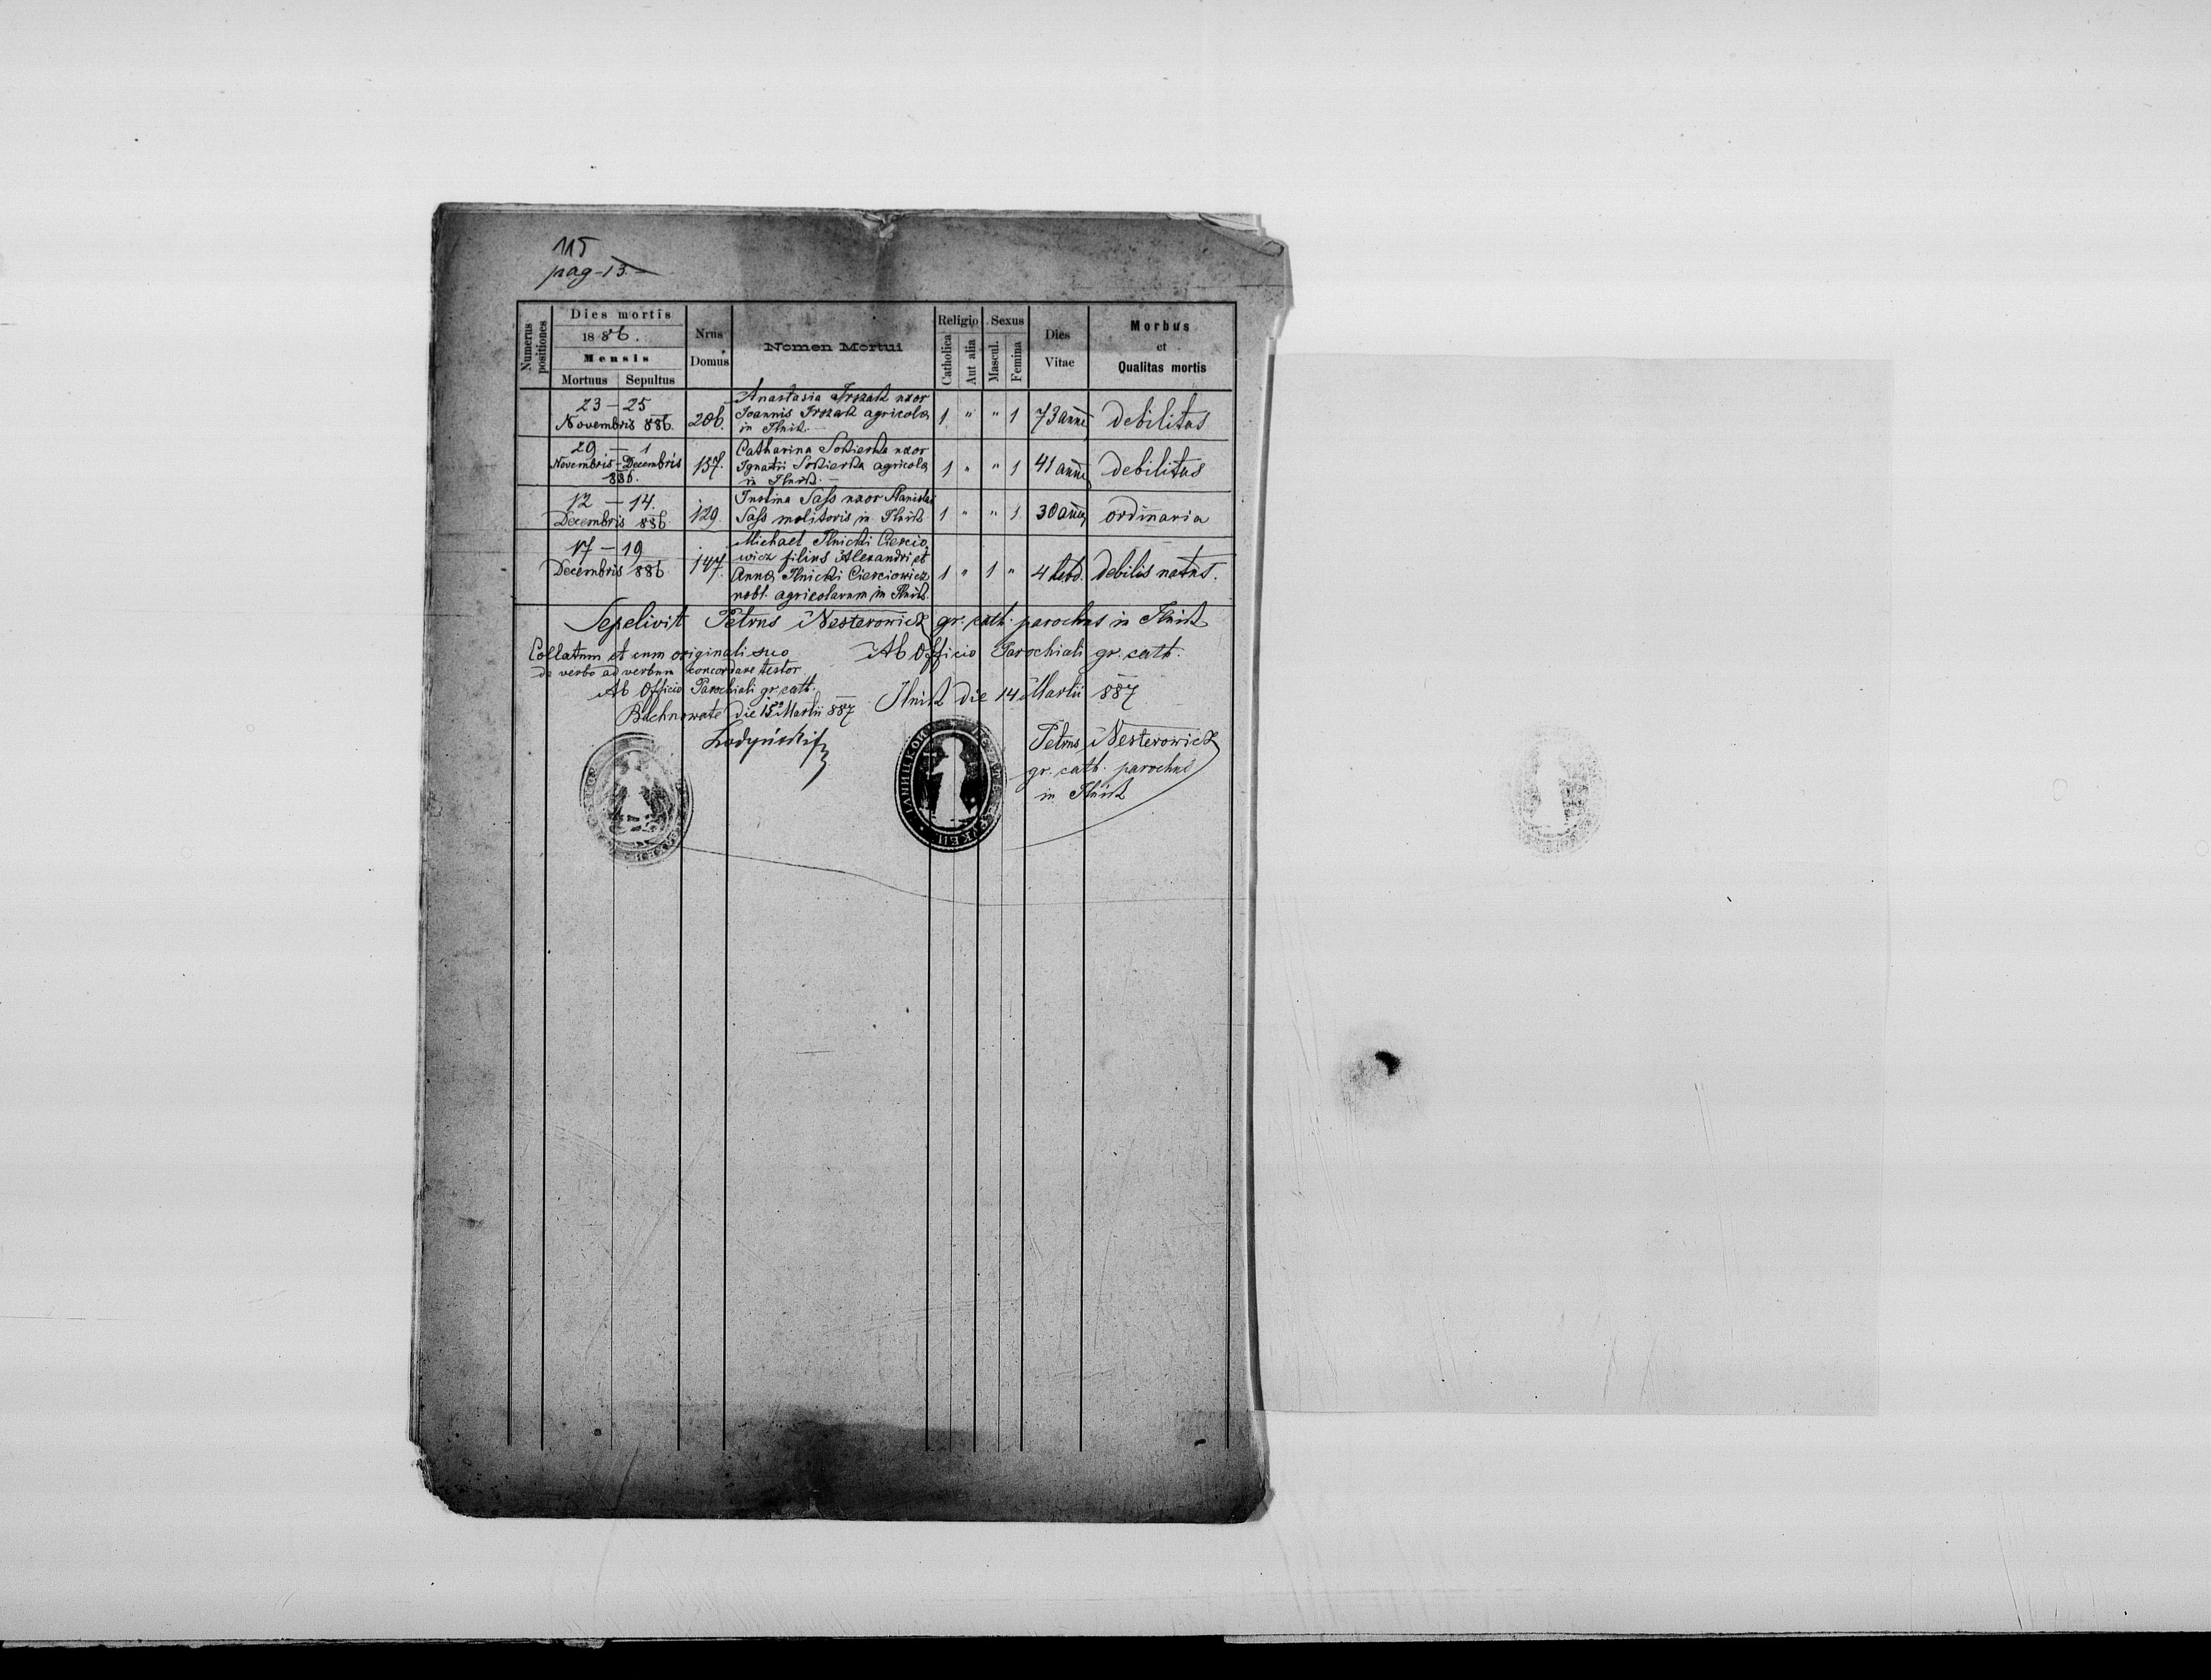 115
pag-13.-
Numerus positiones
Dies mortis
1886.
Mensis
Mortuus Sepultus
Nrus Domus
Nomen Mortui
Religio
Catholica
Aut alia
Sexus
Mascul.
Femina
Dies Vitae
Morbus
et
Qualitas mortis
23 - 25
Novembris 886.
206.
Anastasia uxor
Joannis agricola
in Ilnik.
1 " " 1
73 anni
debilitas
29 - 1
Novembris - Decembris
886.
157.
Catharina uxor
Ignatii agricola
in Ilnik.
1 " " 1
41 anni
debilitas
12 - 14.
Decembris 886
129.
Justina Sass uxor Stanislai
Sass molitoris in Ilnik
1 " " 1
30 anni
ordinaria
17 - 19
Decembris 886
147.
Michael Ilnicki Ciercio
wicz filius Alexandri et
Anna Ilnicki Cierciowicz
nobl. agricolarum in Ilnik.
1 " 1 "
4 hebd.
debilis natus.
Sepelivit Petrus Nesterowicz gr. cath. parochus in Ilnik
Collatum et cum originali suo
de verbo ad verbum concordare testor
Ab Officio Parochiali gr. cath.
die 15 Martii 887
Ab Officio Parochiali gr. cath.
Ilnik die 14 Martii 887
Petrus Nesterowicz
gr. cath. parochus
in Ilnik